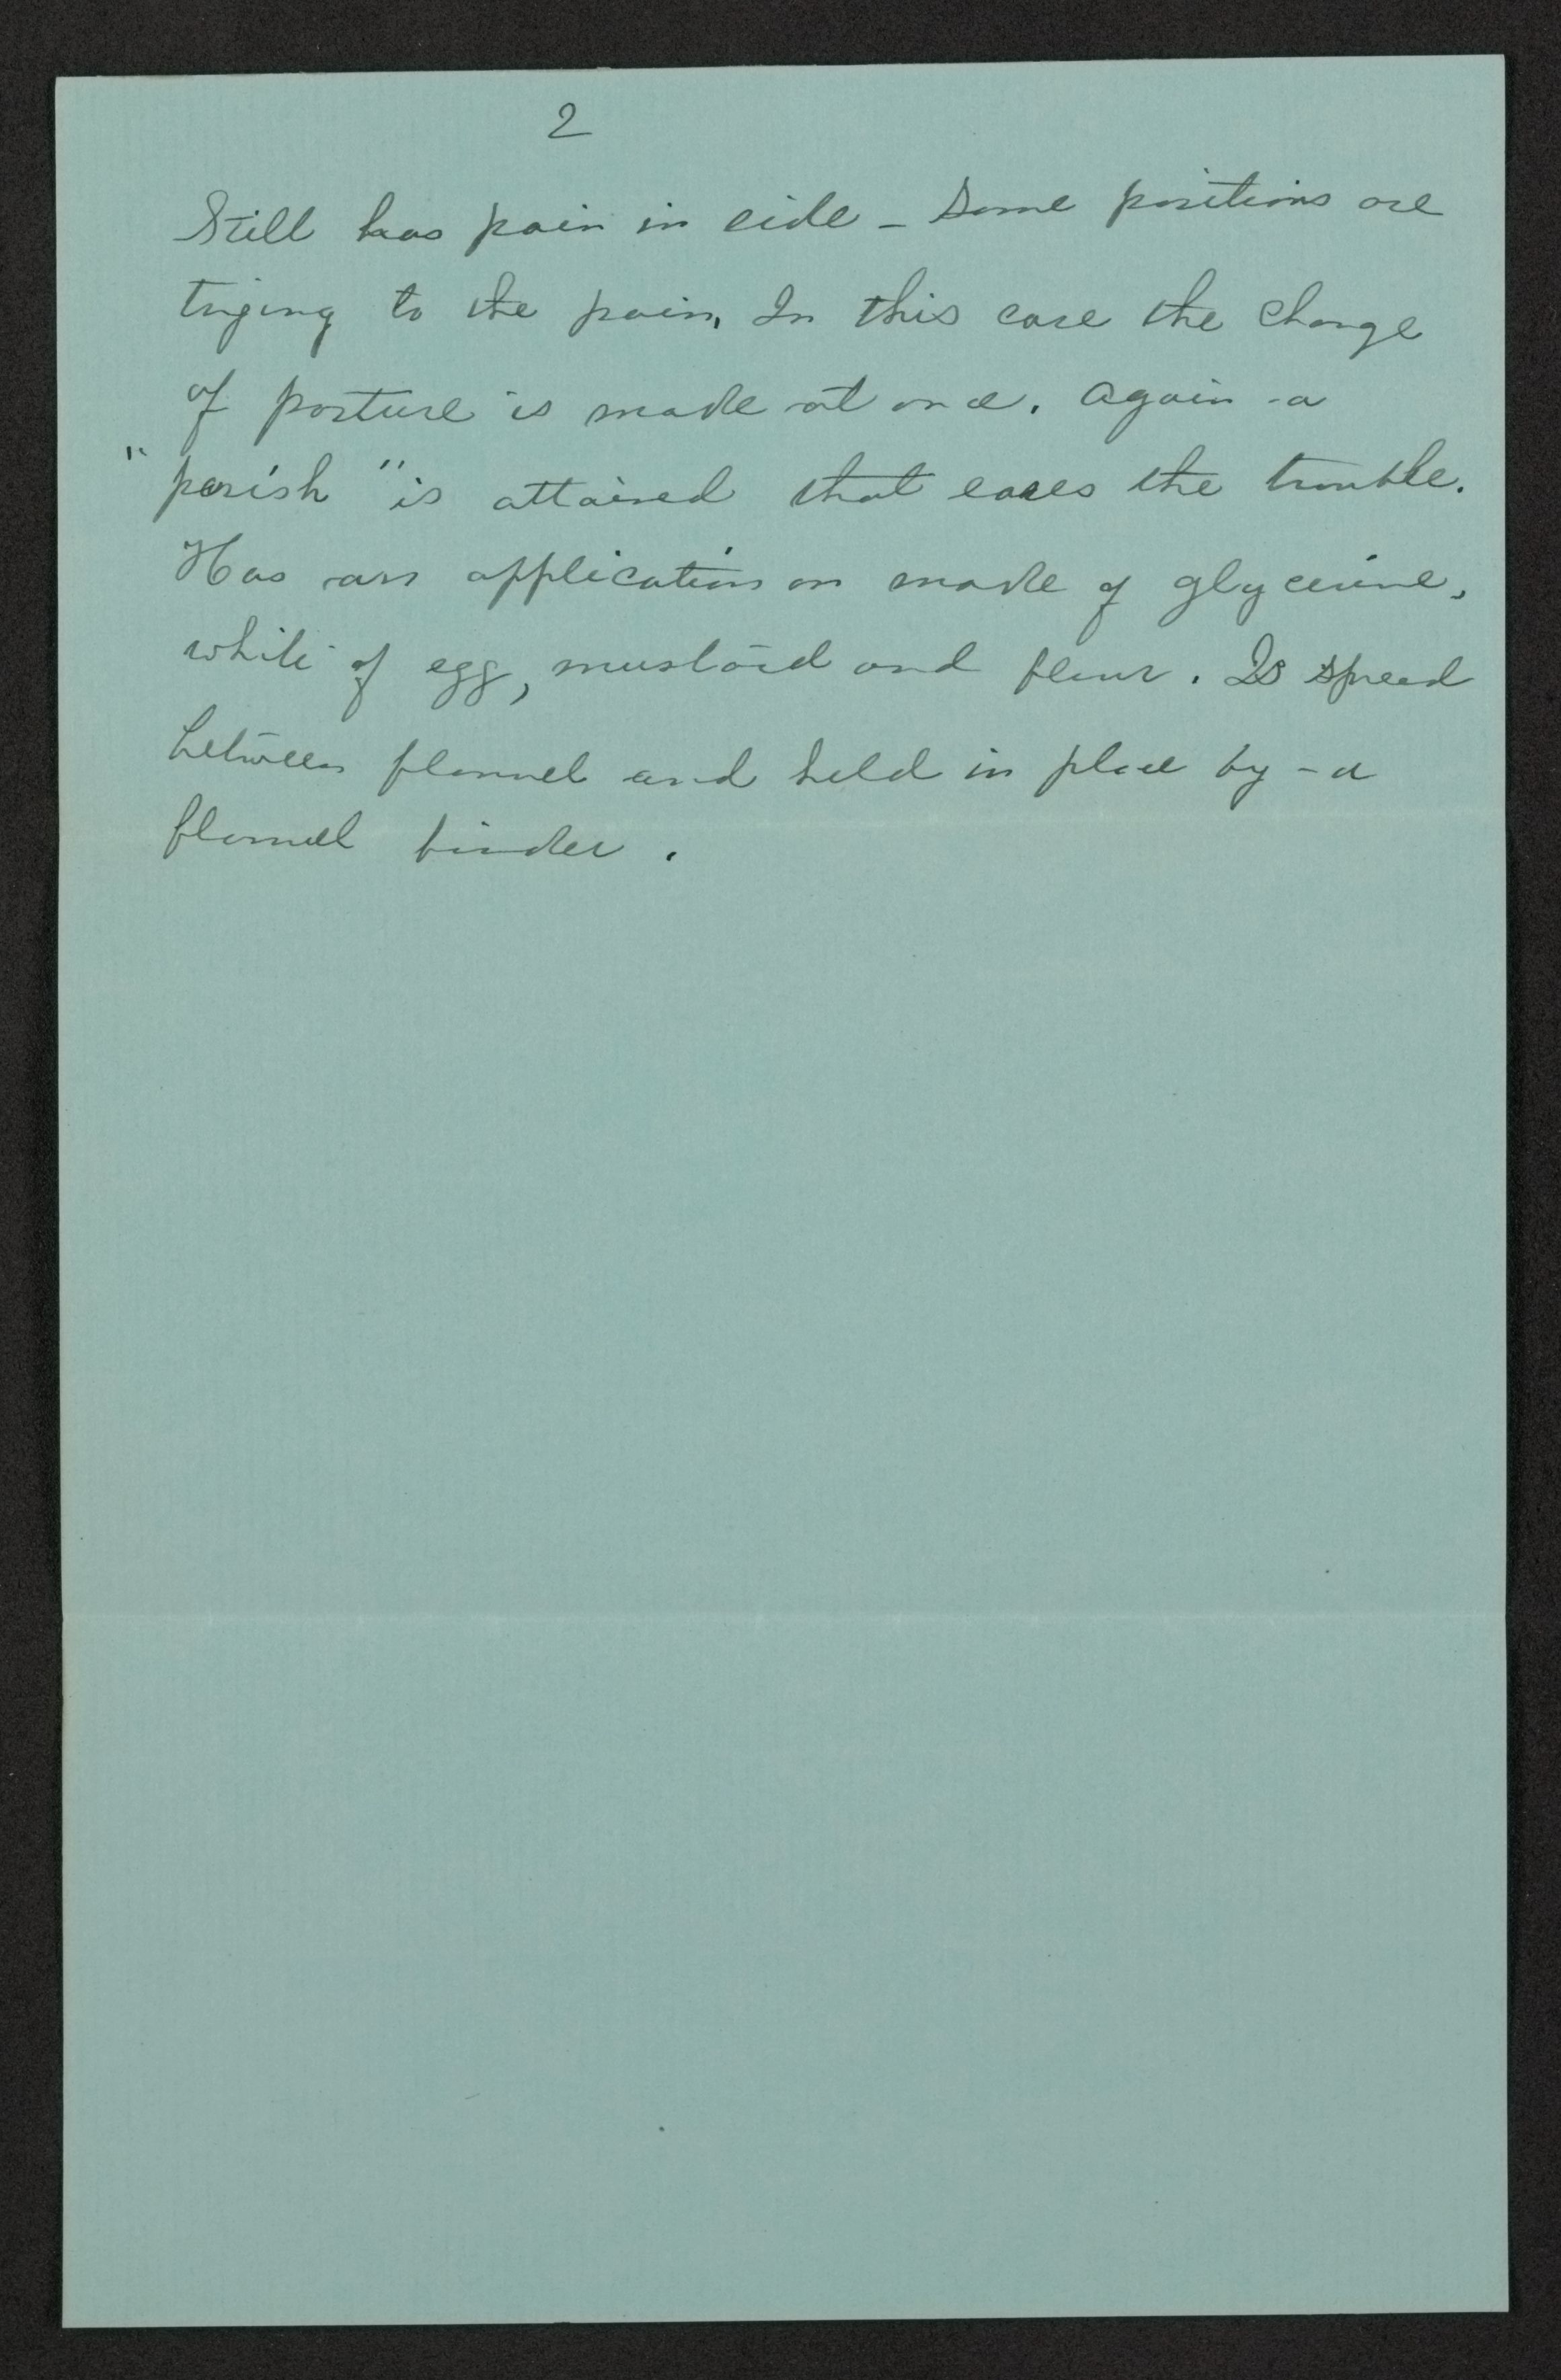 2
Still has pain in side – Some positions are
trying to the pain, In this case the change
of posture is made at once. Again a
"parish" is attained that eases the trouble.
Has an application on made of glycerine,
white of egg, mustard and flour. Is spread
between flannel and held in place by a
flannel binder.